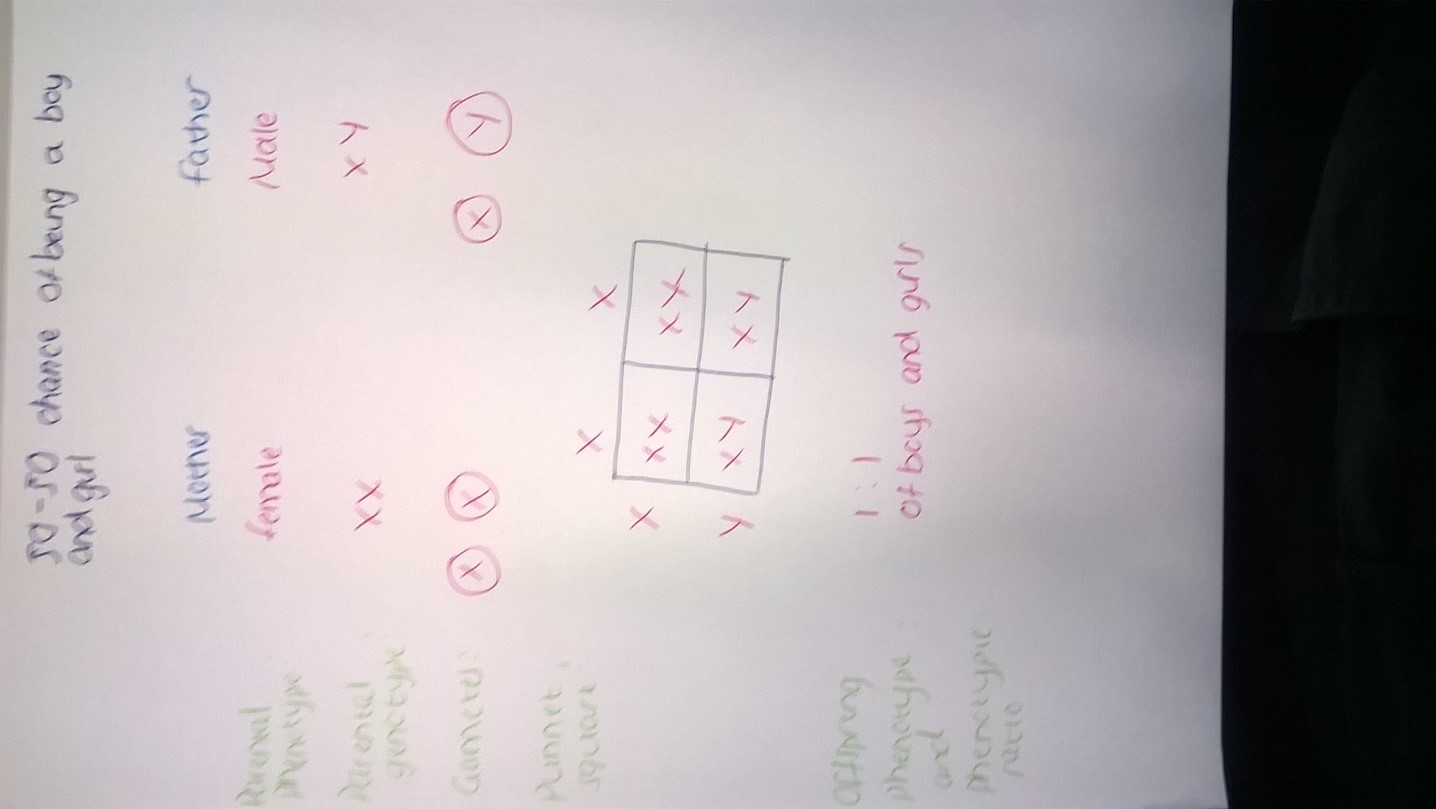 50-50 chance of being a boy
and girl
Mother Father
Parental
phenotype female Male
Parental
genotype XX XY
Gametes: X X X Y
Punnet
square:
X X
X XX XX
Y XY XY
Offspring 1 : 1
phenotype of boys and girls
and
phenotypic
ratio